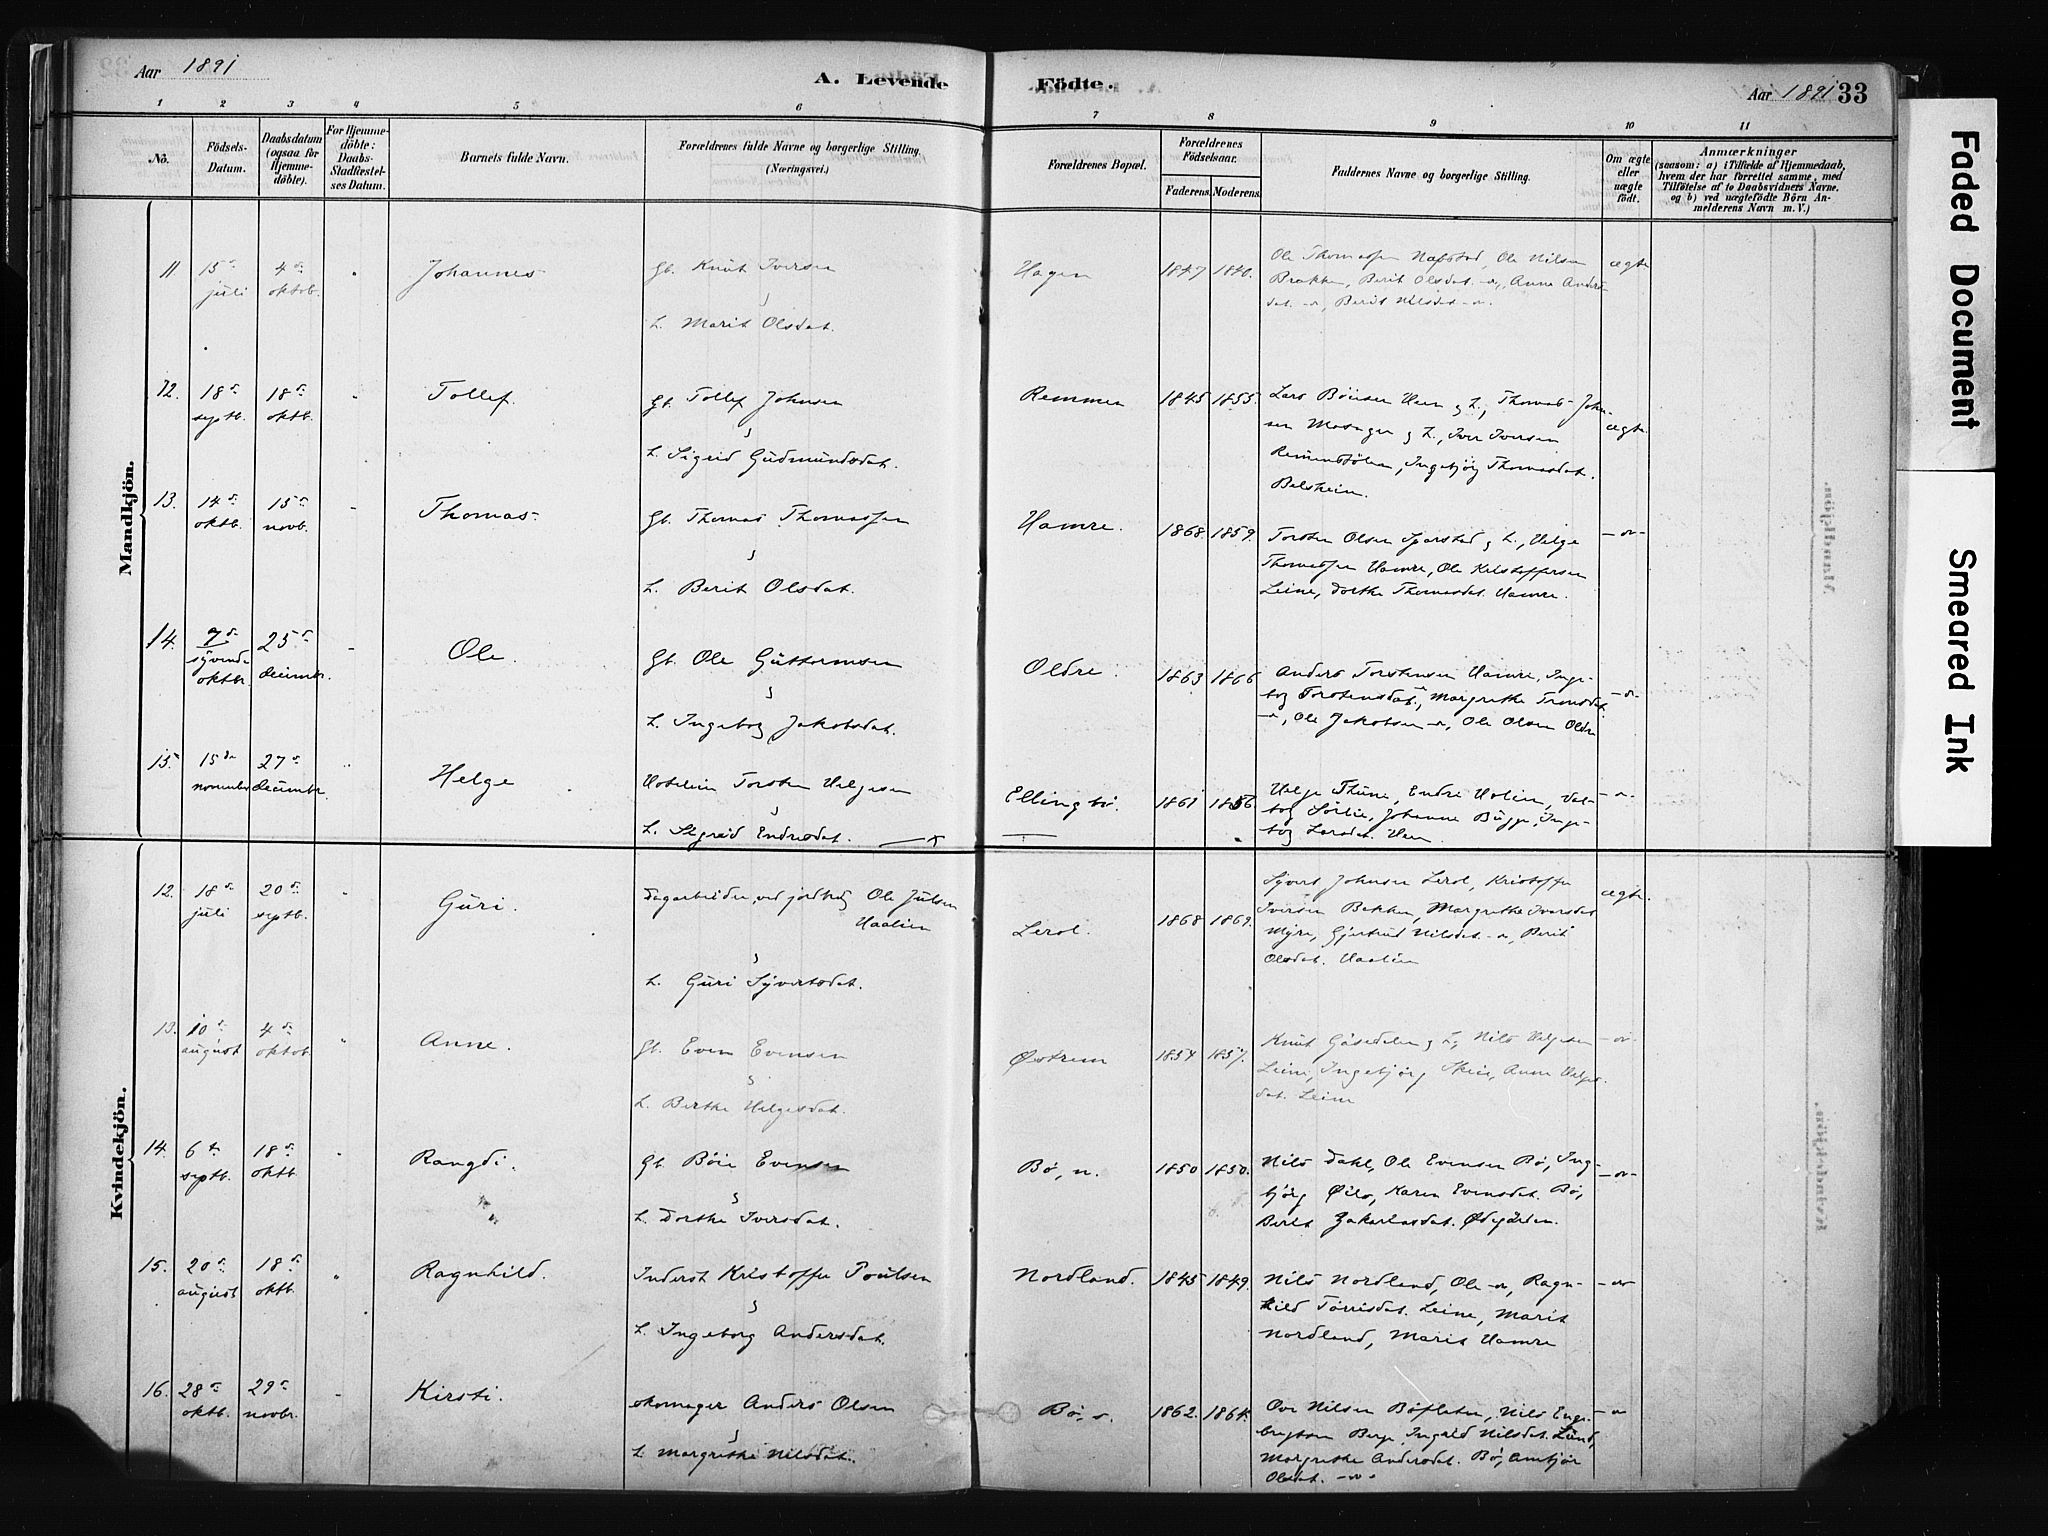 Aar 1891
A. Levende
Födte.
Aar 1891 33
1 2 3 4 5 6 7 8 9 10 11
No.
Födsels-
Datum.
Daabsdatum
(ogsaa for
Hjemme-
döbte).
For Hjemme-
döbte:
Daabs-
Stadfæstel-
ses Datum.
Barnets fulde Navn.
Forældrenes fulde Navne og borgerlige Stilling.
(Næringsvei.)
Forældrenes Bopæl.
Forældrenes
Födselsaar.
Faderens. Moderens.
Faddernes Navne og borgerlige Stilling.
Om ægte
eller
uægte
født.
Anmærkninger
(saasom: a) i Tilfælde af Hjemmedaab,
hvem der har forrettet samme, med
Tilföielse af to Daabsvidners Navne,
og b) ved uægtefödte Börn An-
melderens Navn m. V.)
Mandkjön.
11 15de juli 4de oktob. Johannes
Gb. Knut Iversen
L. Marit Olsdat.
Hagen 1847 1840.
Ole Thomassen Nafstad, Ole Nilsen
Brakken, Berit Olsdat. -n, Anne Anders-
dat. -n, Berit Nilsdat -n.
ægte
12. 18de septb. 18de oktb. Tollef.
Gb. Tollef Johnsen
L. Sigrid Gudmundsdat.
Remmen 1845 1855.
Lars Böiesen Hven g L., Thomas John-
sen Mosnger g L., Iver Iversen
Ingebjörg Thomasdat.
Belsheim.
ægte.
13. 14de oktb. 15de novb. Thomas.
Gb. Thomas Thomassen
L. Berit Olsdat.
Hamre. 1868. 1859.
Torsten Olsen g L., Helge
Thomassen Hamre, Ole Kristoffersen
Leine, Dorthe Thomasdat. Hamre.
14. 7de syvende oktbr. 25de decembr. Ole.
Gb. Ole Guttormsen
L. Ingebog Jakobsdat.
Oldre. 1863 1866
Anders Torstensen Hamre, Inge-
bog Torstensdat., Margrethe
-n, Ole Jakobsen -n, Ole Olsen Oldre
15. 15de november 27de decembr. Helge
Torsten Helgesen
L. Sigrid Endresdat.
Ellingbö. 1861 1856
Helge Thune, Endre
Johanne Bugge, Inge-
bog Larsdat. Hven
Kvindekjön.
12. 18de juli 20de septb. Guri.
Dagarbeider ved jordbrug Ole Julsen
Haalien
L. Guri Syvertsdat.
Lerol. 1868 1869.
Syvert Johnsen Lerol, Kristoffer
Iversen Bakken, Margrethe Iversdat
Myre, Gjertrud Nilsdat -n, Berit
Olsdat. Haalien
ægte.
13. 10de august 4de oktob. Anne.
Gb. Even Evensen
L. Berthe Helgesdat.
Østrem 1854 1857.
Knut Gåsedelen g L., Nils Helgesen
Leine, Ingebjörg Skeie, Anne Helges-
dat. Leine
14. 6te septb. 18de oktb. Rangdi.
Gb. Böie Evensen
L. Dorthe Iversdat.
Bö, n. 1850 1850.
Nils Dahl, Ole Evensen Bö, Ing-
björg Øilo, Karen Evensdat. Bö,
Berit Zakariasdat. Ødegården.
15. 20de august 18de oktb. Ragnhild.
Inderst Kristoffer Poulsen
L. Ingeborg Andersdat.
Nordland. 1845 1849.
Nils Nordland, Ole -n, Ragn-
hild Törrisdat. Leine, Marit
Nordland, Marit Hamre
16. 28de oktb. 29de novbr. Kirsti.
skomager Anders Olsen
L. Margrethe Nilsdat.
Bö, s. 1862. 1864.
Ove Nilsen Böfleten, Nils Enge-
bregtsen Berge, Ingrid Nilsdat. Lund,
Margrethe Andersdat. Bö, Ambjör
Olsdat.
Faded Document
Smeared Ink